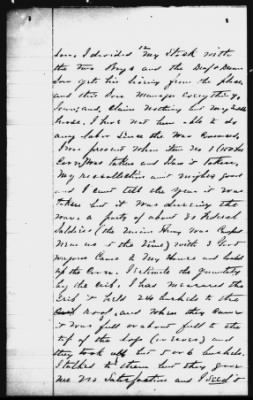 Son. I divided my Stock with
the two Boys and the Deaf & Dumb
Son gets his living from the place
and this Son manages everything.
I own, and Claim nothing but my
horse. I have not been able to do
any labor since the War Commenced.
I was present when Item No 1 (100 bu
Corn) was taken and I saw it taken.
My recollection aint might good
and I cant tell the year it was
taken but it was during the
war. a party of about 20 Federal
Soldiers (the Union Army was Camped
Near us at the time) with 3 Govt
wagons Came to My house and loaded
up the Corn. I estimate the quantity
by the Crib. I had measured the
Crib & held 24 bushels to the
foot and when they came
it was full or about full to the
top of the logs (in eaves) and
they took all but 5 or 6 bushels.
I talked to them but they gave
me no Satisfaction and I